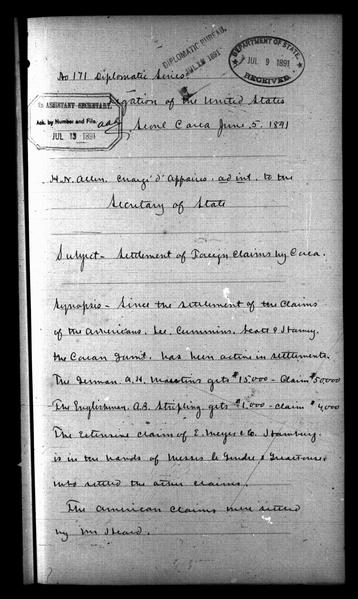 DIPLOMATIC BUREAU.
JUL 13 1891
DEPARTMENT OF STATE.
JUL 9 1891
RECEIVED
No 171 Diplomatic Series
ASSISTANT SECRETARY.
Ack. by Number and File.
JUL 13 1891
Legation of the United States
Seoul Corea June 5. 1891
H. N. Allen. Chargé d'Affaires. ad int. to the
Secretary of State
Subject - Settlement of Foreign Claims by Corea.
Synopsis - Since the settlement of the Claims
of the Americans. Lee. Cummins.
the Corean Gvmt. has been active in settlements.
The German. A. H. gets $15000 - Claim $50000
The Englishman. A.B. Stripling. gets $1,000 - claim $4,000
The Extensive claim of E. Meyer & Co. Hamburg.
is in the hands of Messrs Le Gendre & Greathouse
who settled the other claims.
The American Claims were settled
by Mr Heard.